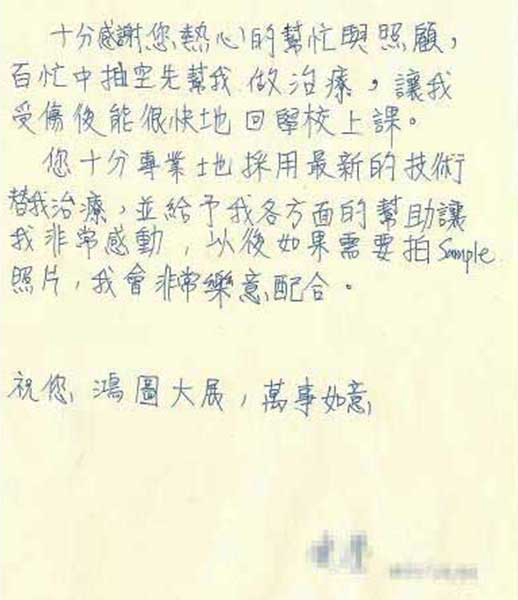 十分感謝您熱心的幫忙與照顧，
百忙中抽空先幫我做治療，讓我
受傷後能很快地回學校上課。
您十分專業地採用最新的技術
替我治療，並給予我各方面的幫助讓
我非常感動，以後如果需要拍Sample
照片，我會非常樂意配合。
祝您 鴻圖大展，萬事如意